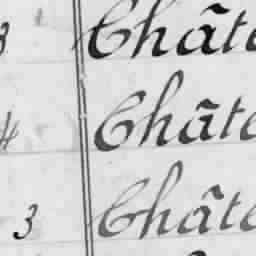 3 Châte
4 Châte
3 Châte